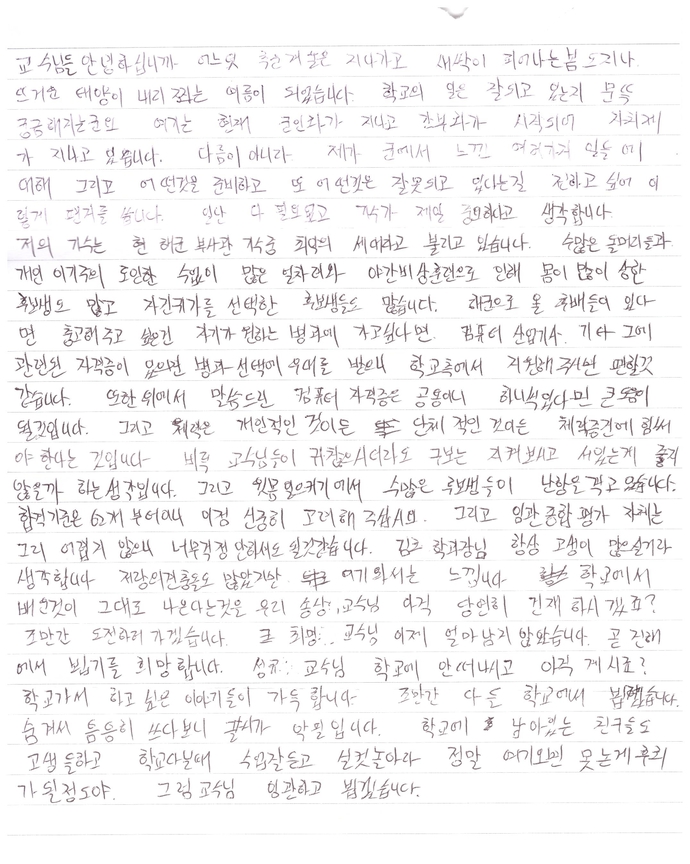 교수님들 안녕하십니까 어느덧 추운 겨울은 지나가고 새싹이 피어나는 봄도 지나
뜨거운 태양이 내리 쬐는 여름이 되었습니다. 학교의 일은 잘되고 있는지 문득
궁금해지는군요 여기는 현재 군인화가 지나고 간부화가 시작되어 자치제
가 지나고 있습니다. 다름이아니라 제가 군에서 느낀 여러가지 일들에
대해 그리고 어떤것을 준비하고 또 어떤것은 잘못되고 있다는걸 전하고 싶어 이
렇게 편지를 씁니다. 일단 다 필요없고 기수가 제일 중요하다고 생각합니다.
저의 기수는 현 해군 부사관 기수중 최악의 세대라고 불리고 있습니다. 수많은 돌머리들과
개인 이기주의 로인한 수없이 많은 얼차려와 야간비상훈련으로 인해 몸이 많이 상한
후보생도 많고 자진귀가를 선택한 후보생들도 많습니다. 해군으로 올 후배들이 있다
면 충고해주고 싶은건 자기가 원하는 병과에 가고싶다면 컴퓨터 산업기사 기타 그에
관련된 자격증이 있으면 병과 선택에 우대를 받으니 학교측에서 지원해주시면 편할것
같습니다. 또한 위에서 말씀드린 컴퓨터 자격증은 공용이니 하나씩있다면 큰 도움이
될것입니다. 그리고 체력은 개인적인 것이든 단체 적인 것이든 체력증진에 힘써
야 한다는 것입니다 비록 교수님들이 귀찮으시더라도 구보는 지켜보시고 서있는게 좋지
않을까 하는 생각입니다. 그리고 윗몸일으키기에서 수많은 후보생들이 난항을 겪고 있습니다.
합격기준은 62개 부터이니 이점 신중히 고려해 주십시요. 그리고 임관 종합 평가 자체는
그리 어렵지 않으니 너무걱정 안하셔도 될것같습니다. 김 학과장님 항상 고생이 많으실거라
생각합니다 저랑의견충돌도 많았지만 여기와서는 느낍니다 학교에서
배운것이 그대로 나온다는것을 우리 송상, 교수님 아직 당연히 건재 하시겠죠?
조만간 도전하러 가겠습니다. 희명.. 교수님 이제 얼마남지 않았습니다. 곧 진해
에서 뵙기를 희망합니다. 성규.. 교수님 학교에 안떠나시고 아직 계시죠?
학교가서 하고 싶은 이야기들이 가득 합니다 조만간 다들 학교에서 뵙겠습니다.
숨겨서 틈틈히 쓰다보니 글씨가 악필입니다. 학교에 남아있는 친구들도
고생들하고 학교다닐때 수업잘듣고 실컷놀아라 정말 여기오면 못노는게 후회
가 될정도야. 그럼 교수님 임관하고 뵙겠습니다.